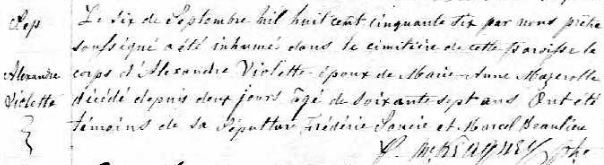 Sep
Alexandre
Violette
Le six de Septembre mil huit cent cinquante six par nous prêtre
soussigné a été inhumé dans le cimitière de cette paroisse le
corps d'Alexandre Violette époux de Marie Anne Mazerolle
décédé depuis deux jours agé de soixante sept ans Ont été
témoins de sa sépulture Frédéric Soucie et Marcel Beaulieu
McKeagney ptre